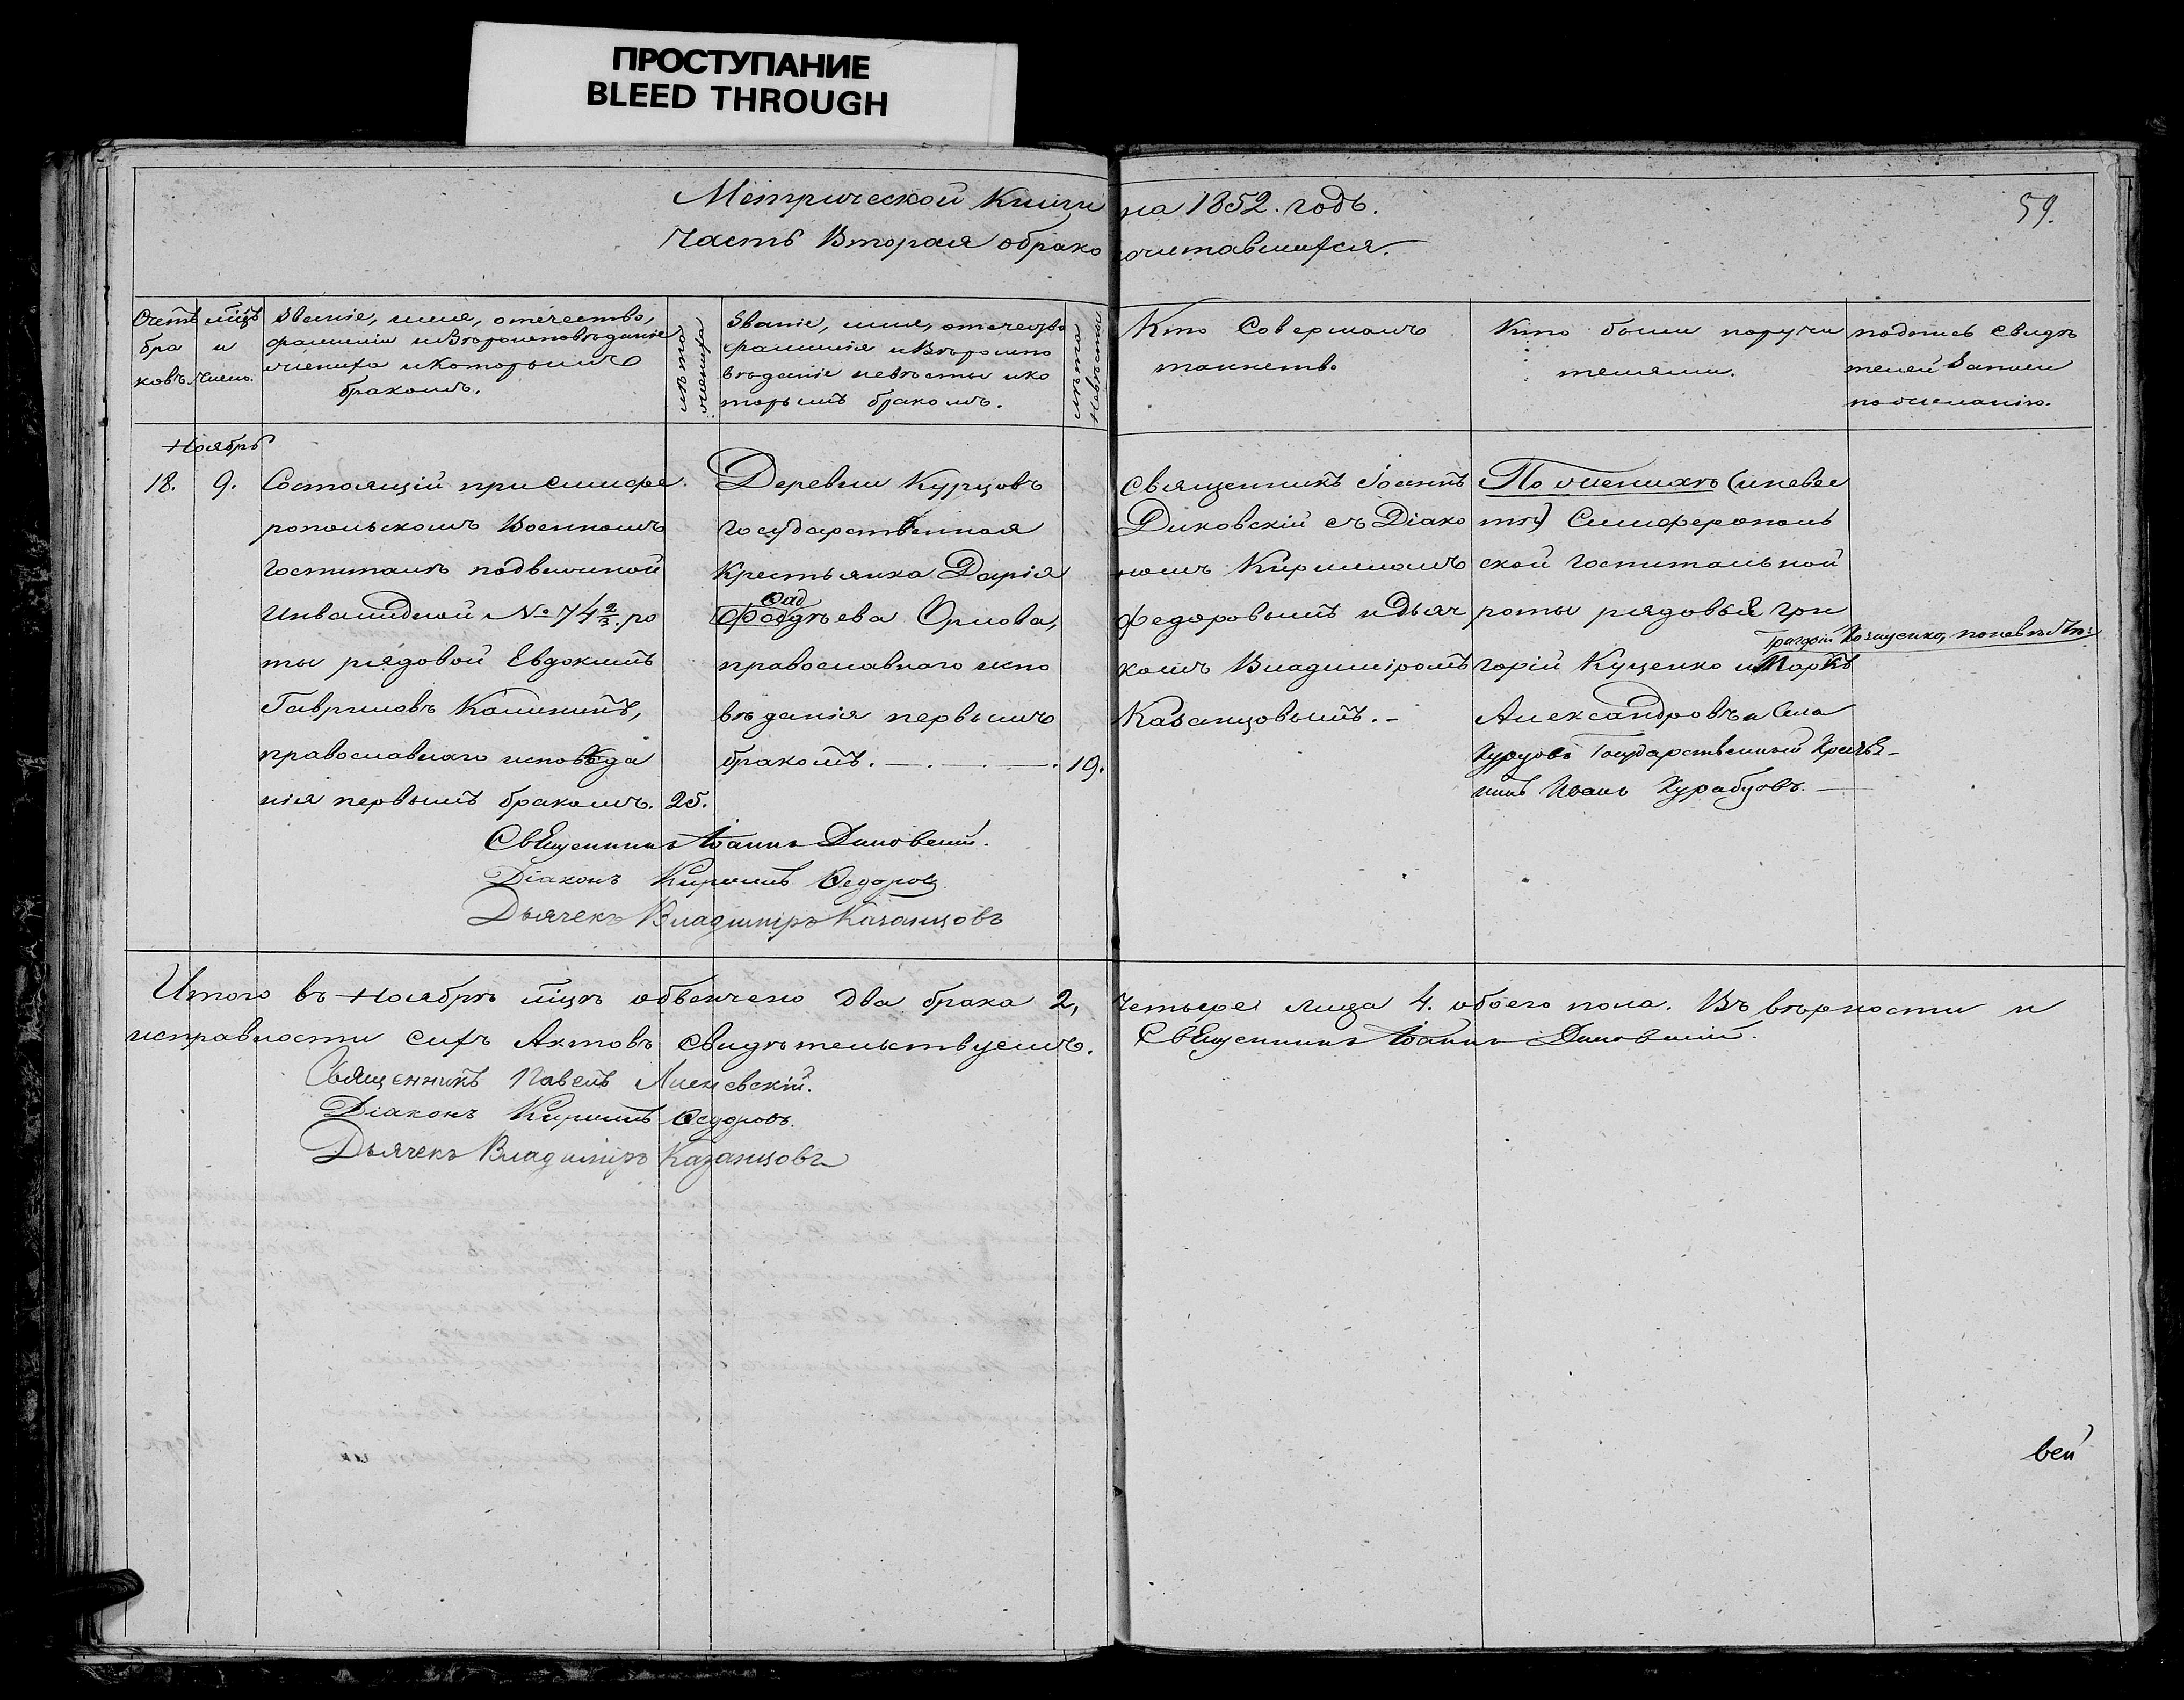 ПРОСТУПАНИЕ
BLEED THROUGH
Метрической Книги на 1852. годъ.
59.
Часть Вторая обрако сочетавшихся.
Счетъ бра ковъ.
мцъ и число.
Званіе, имя, отечество,
фамилія и Вѣроисповѣданіе
жениха и которымъ
бракомъ.
лѣта жениха
Званіе, имя, отечество
фамилія и Вѣроиспо
вѣданіе невѣсты и ко
торымъ бракомъ.
лѣта Невѣсты
Кто Совершалъ
таинство
Кто были поручи
телями.
подпись Свидѣ
телей Записи
по желанію.
Ноябрь
18. 9. Состоящій при Симфе
ропольскомъ Военномъ
Госпиталѣ подвижной
Инвалидной № 74 2/3. ро
ты рядовой Евдокимъ
Гавриловъ Калининъ,
православнаго исповѣда
нія первымъ бракомъ. 25.
Деревни Курцовъ
государственная
Крестьянка Дарія
Ѳад
Фадѣева Орлова,
православнаго испо
вѣданія первымъ
бракомъ. 19.
Священникъ Іоаннъ
Диковскій съ Діако
номъ Кирилломъ
Федоровымъ и дьяч
комъ Владиміромъ
Казанцовымъ. -
По женихѣ (и невѣс
тѣ) Симферополь
ской Госпитальной
роты рядовые Гри
Трофим Козиценко, по невѣстѣ:
горій Куценко и Маркъ
Александровъ и Села
Курцовъ Государственный Крестья-
нинъ Иванъ Курабцовъ. —
Священникъ Іоаннъ Диковскій.
Діаконъ Кириллъ Ѳедоровъ
Дьячекъ Владиміръ Казанцовъ
Итого въ Ноябрѣ мцѣ обвенчено два брака 2, Четыре лица 4. обоего пола. Въ вѣрности и
исправности сихъ Актовъ Свидѣтельствуемъ. Священникъ Іоаннъ Диковскій.
Священникъ Павелъ
Діаконъ Кириллъ Ѳедоровъ.
Дьячекъ Владиміръ Казанцовъ
вей